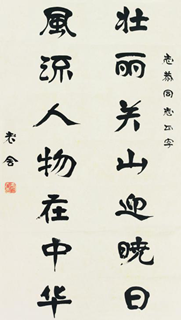 志恭同志正字
壮丽关山迎曉日
風流人物在中华
老舍